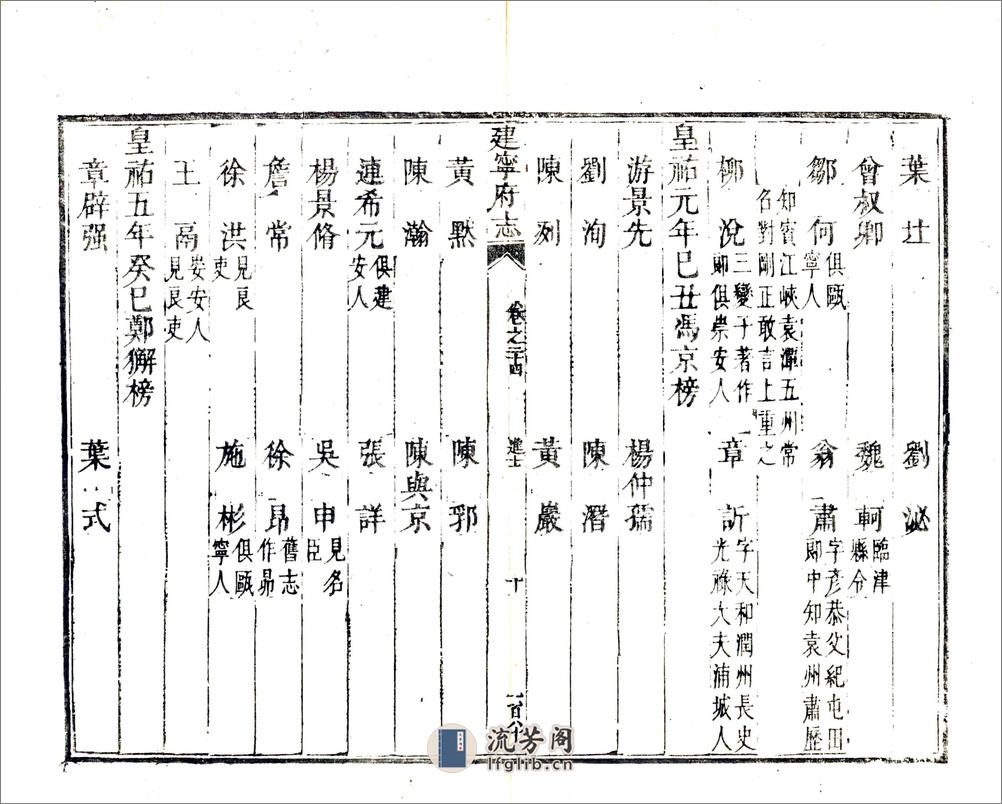 葉㘰　劉泌
曾叔卿　魏軻臨津縣令
鄒何俱甌寧人　翁肅字彥恭父紀屯田郎中知袁州肅歷
知賓江峽袁潭五州常名對剛正敢言上重之
柳說三變子著作郎俱崇安人　章訢字天和潤州長史光祿大夫浦城人
皇祐元年己丑馮京榜
游景先　楊仲孺
劉洵　陳潛
陳列　黃巖
建寧府志　卷之二十四　進士　十　一百八十
黃默　陳郛
陳瀚　陳與京
連希元俱建安人　張詳
楊景脩　吳申見名臣
詹常　徐昂舊志作昴
徐洪見良吏　施彬俱甌寧人
王鬲崇安人見良吏
皇祐五年癸巳鄭獬榜
章辟强　葉式
流芳阁
lfglib.cn